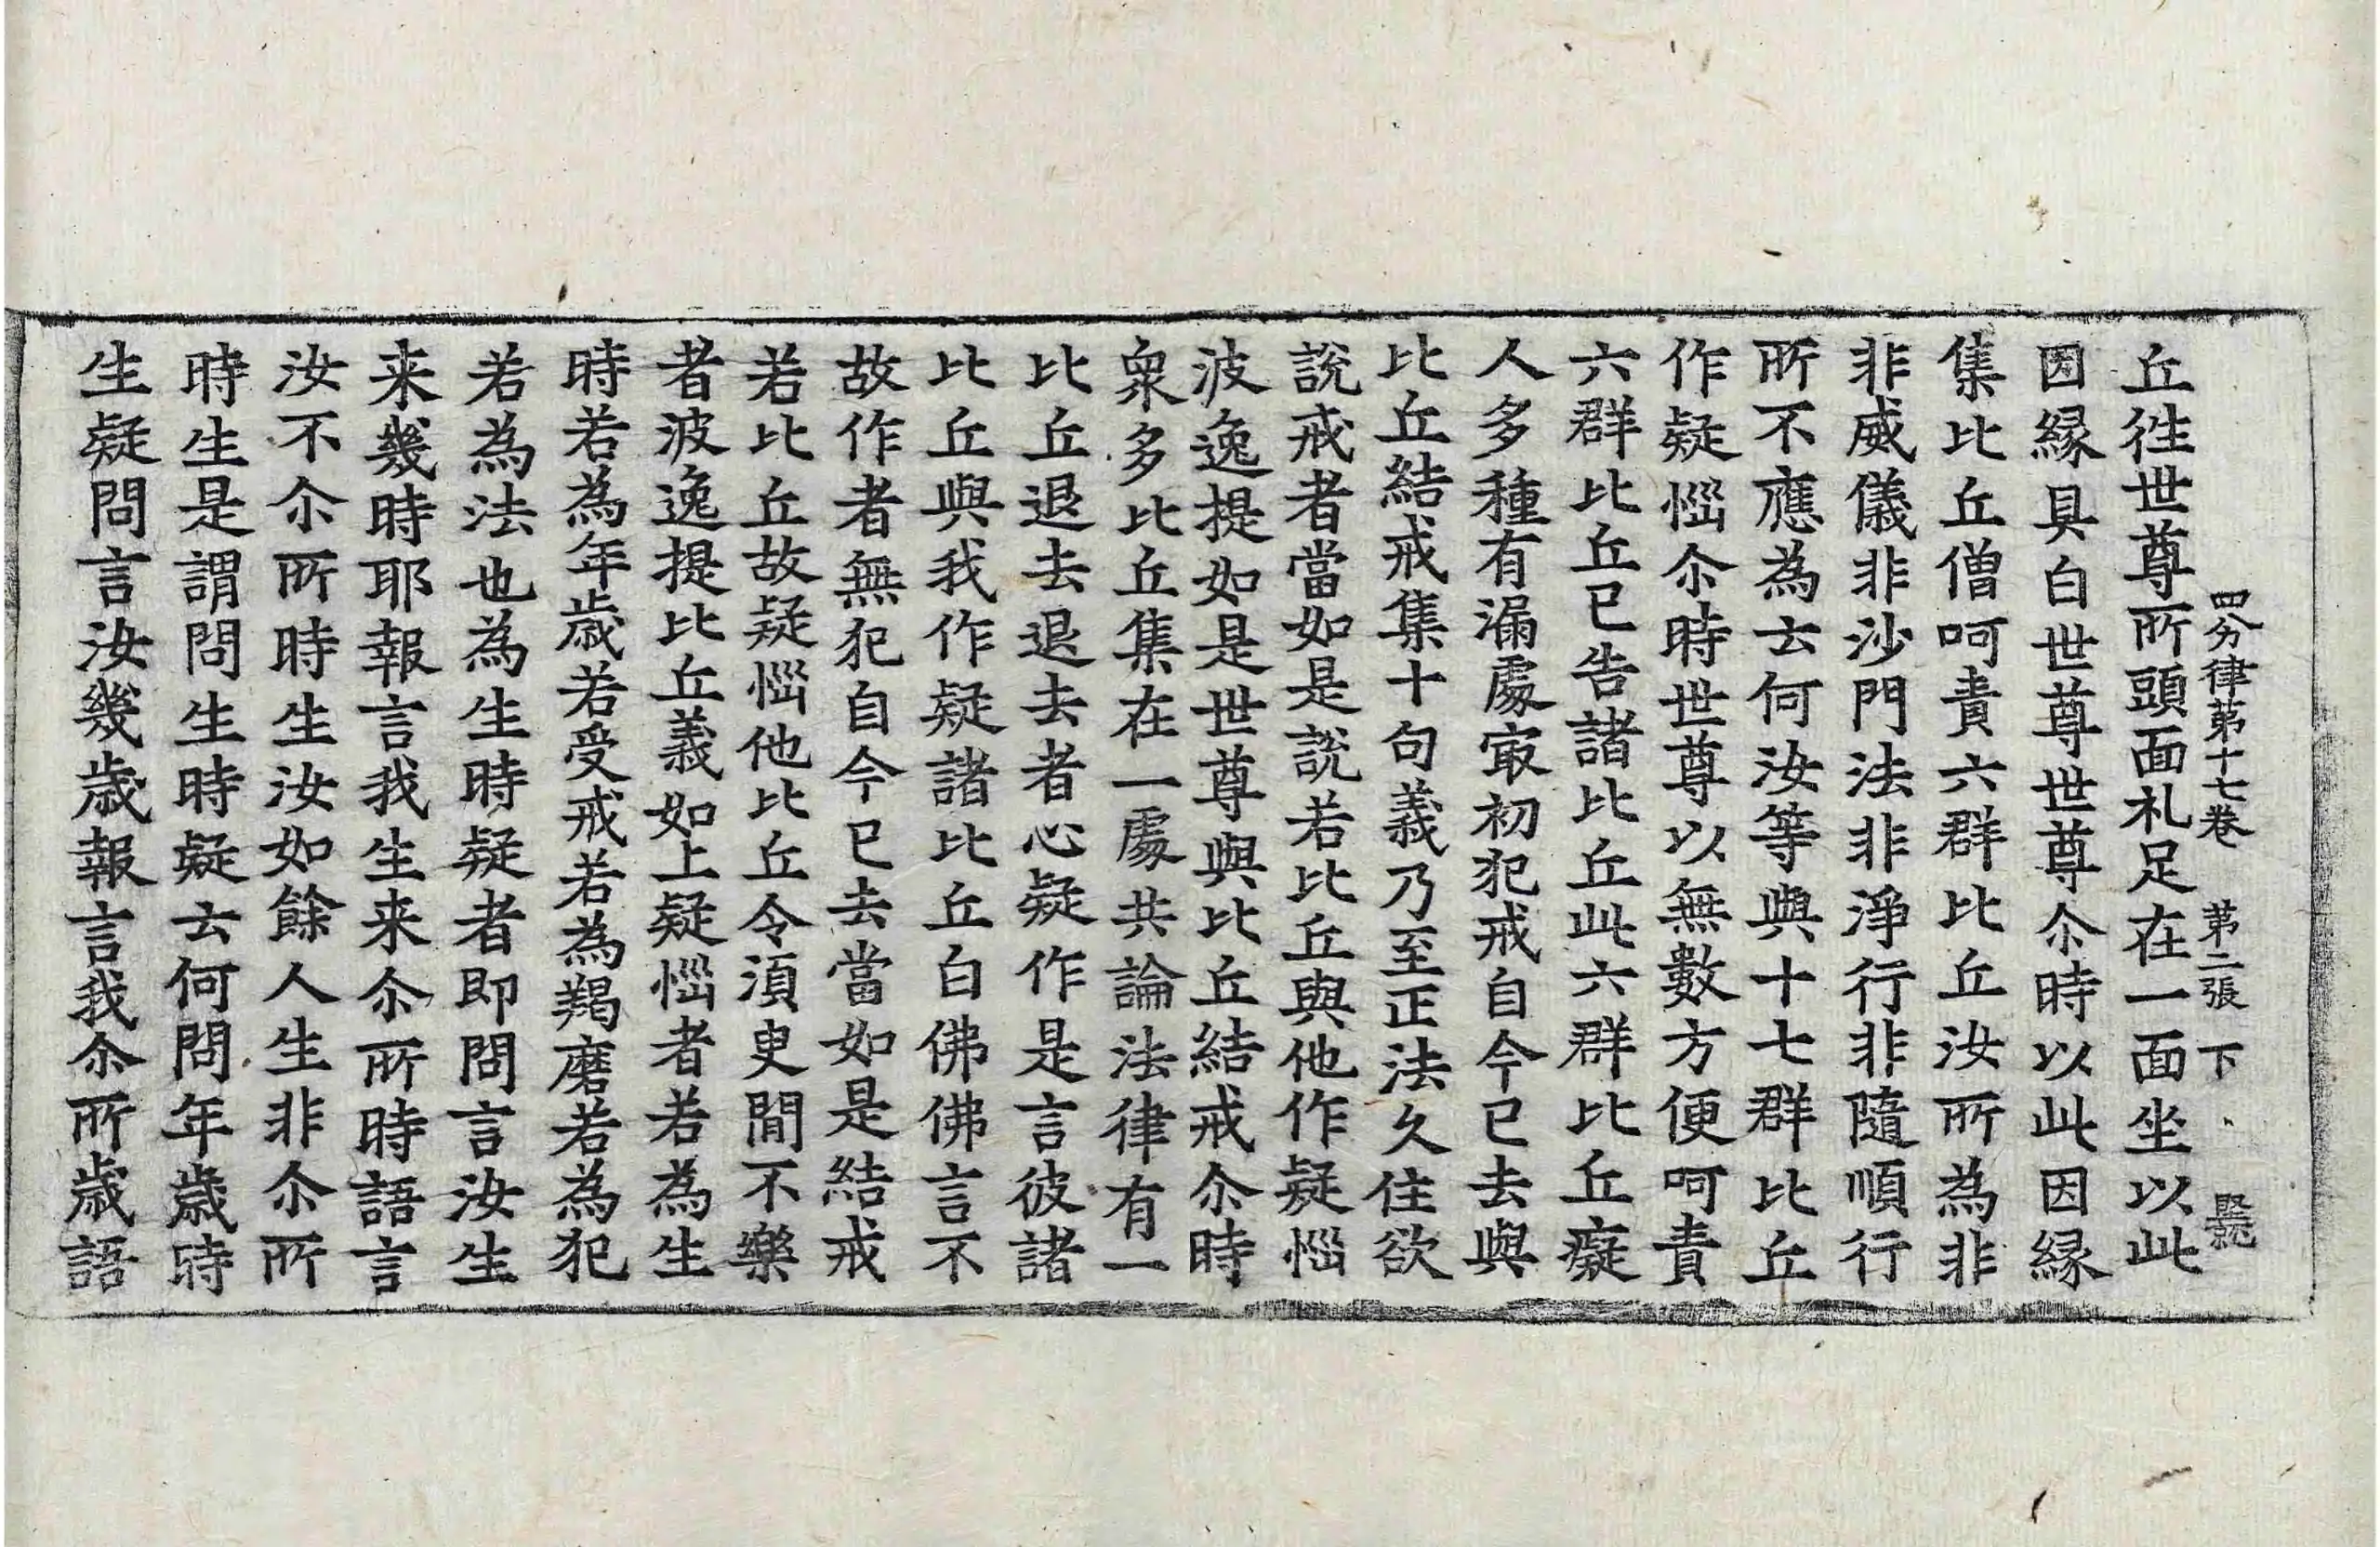 四分律第十七卷 第二張 下
丘徃世尊所頭面礼足在一面坐以此
因縁具白世尊世尊尒時以此因縁
集比丘僧呵責六群比丘汝所為非
非威儀非沙門法非淨行非隨順行
所不應為云何汝等與十七群比丘
作疑惱尒時世尊以無數方便呵責
六群比丘已告諸比丘此六群比丘癡
人多種有漏處㝡初犯戒自今已去與
比丘結戒集十句義乃至正法久住欲
說戒者當如是說若比丘與他作疑惱
波逸提如是世尊與比丘結戒尒時
衆多比丘集在一處共論法律有一
比丘退去退去者心疑作是言彼諸
比丘與我作疑諸比丘白佛佛言不
故作者無犯自今已去當如是結戒
若比丘故疑惱他比丘令須臾間不樂
者波逸提比丘義如上疑惱者若為生
時若為年歲若受戒若為羯磨若為犯
若為法也為生時疑者即問言汝生
来幾時耶報言我生来尒所時語言
汝不尒所時生汝如餘人生非尒所
時生是謂問生時疑云何問年歲時
生疑問言汝幾歲報言我尒所歲語